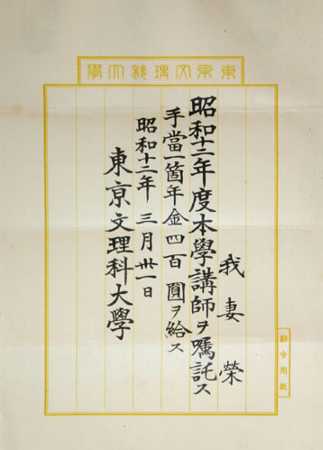 東京文理科大學
我妻榮
昭和十二年度本學講師ヲ囑託ス
手當一箇年金四百圓ヲ給ス
昭和十二年三月卅一日
東京文理科大學
辭令用紙